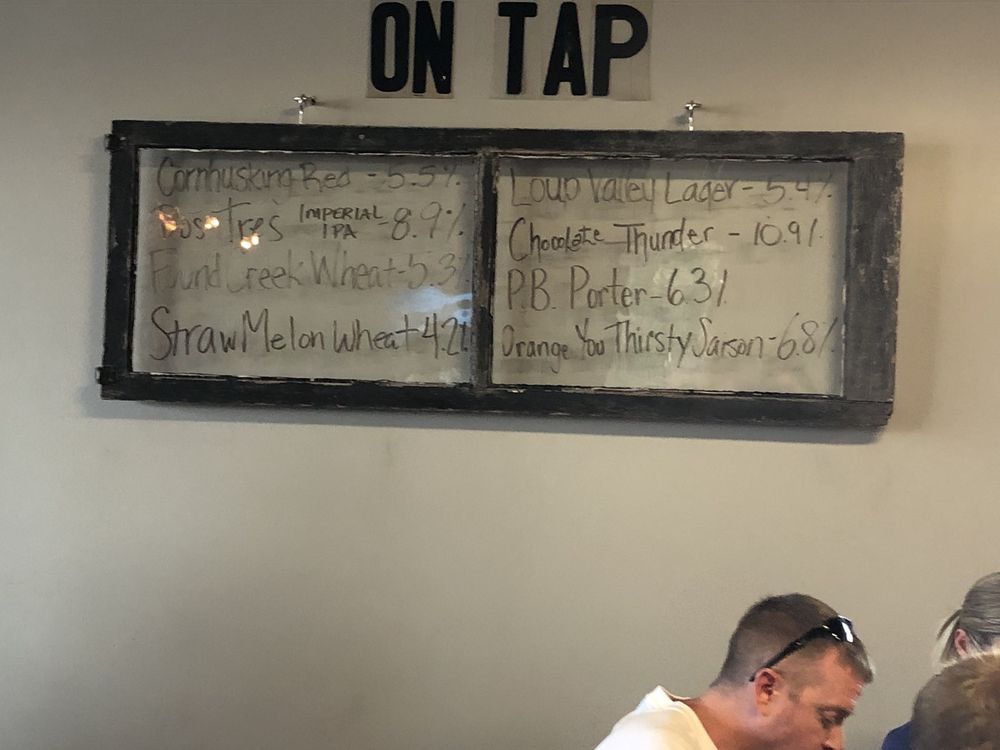 ON TAP
Cornhusking Red - 5.5%
Dos Tres IMPERIAL IPA - 8.9%
Found Creek Wheat - 5.3%
Straw Melon Wheat 4.2%
Loup Valley Lager - 5.4%
Chocolate Thunder - 10.9%
P.B. Porter - 6.3%
Orange You Thirsty Saison - 6.8%